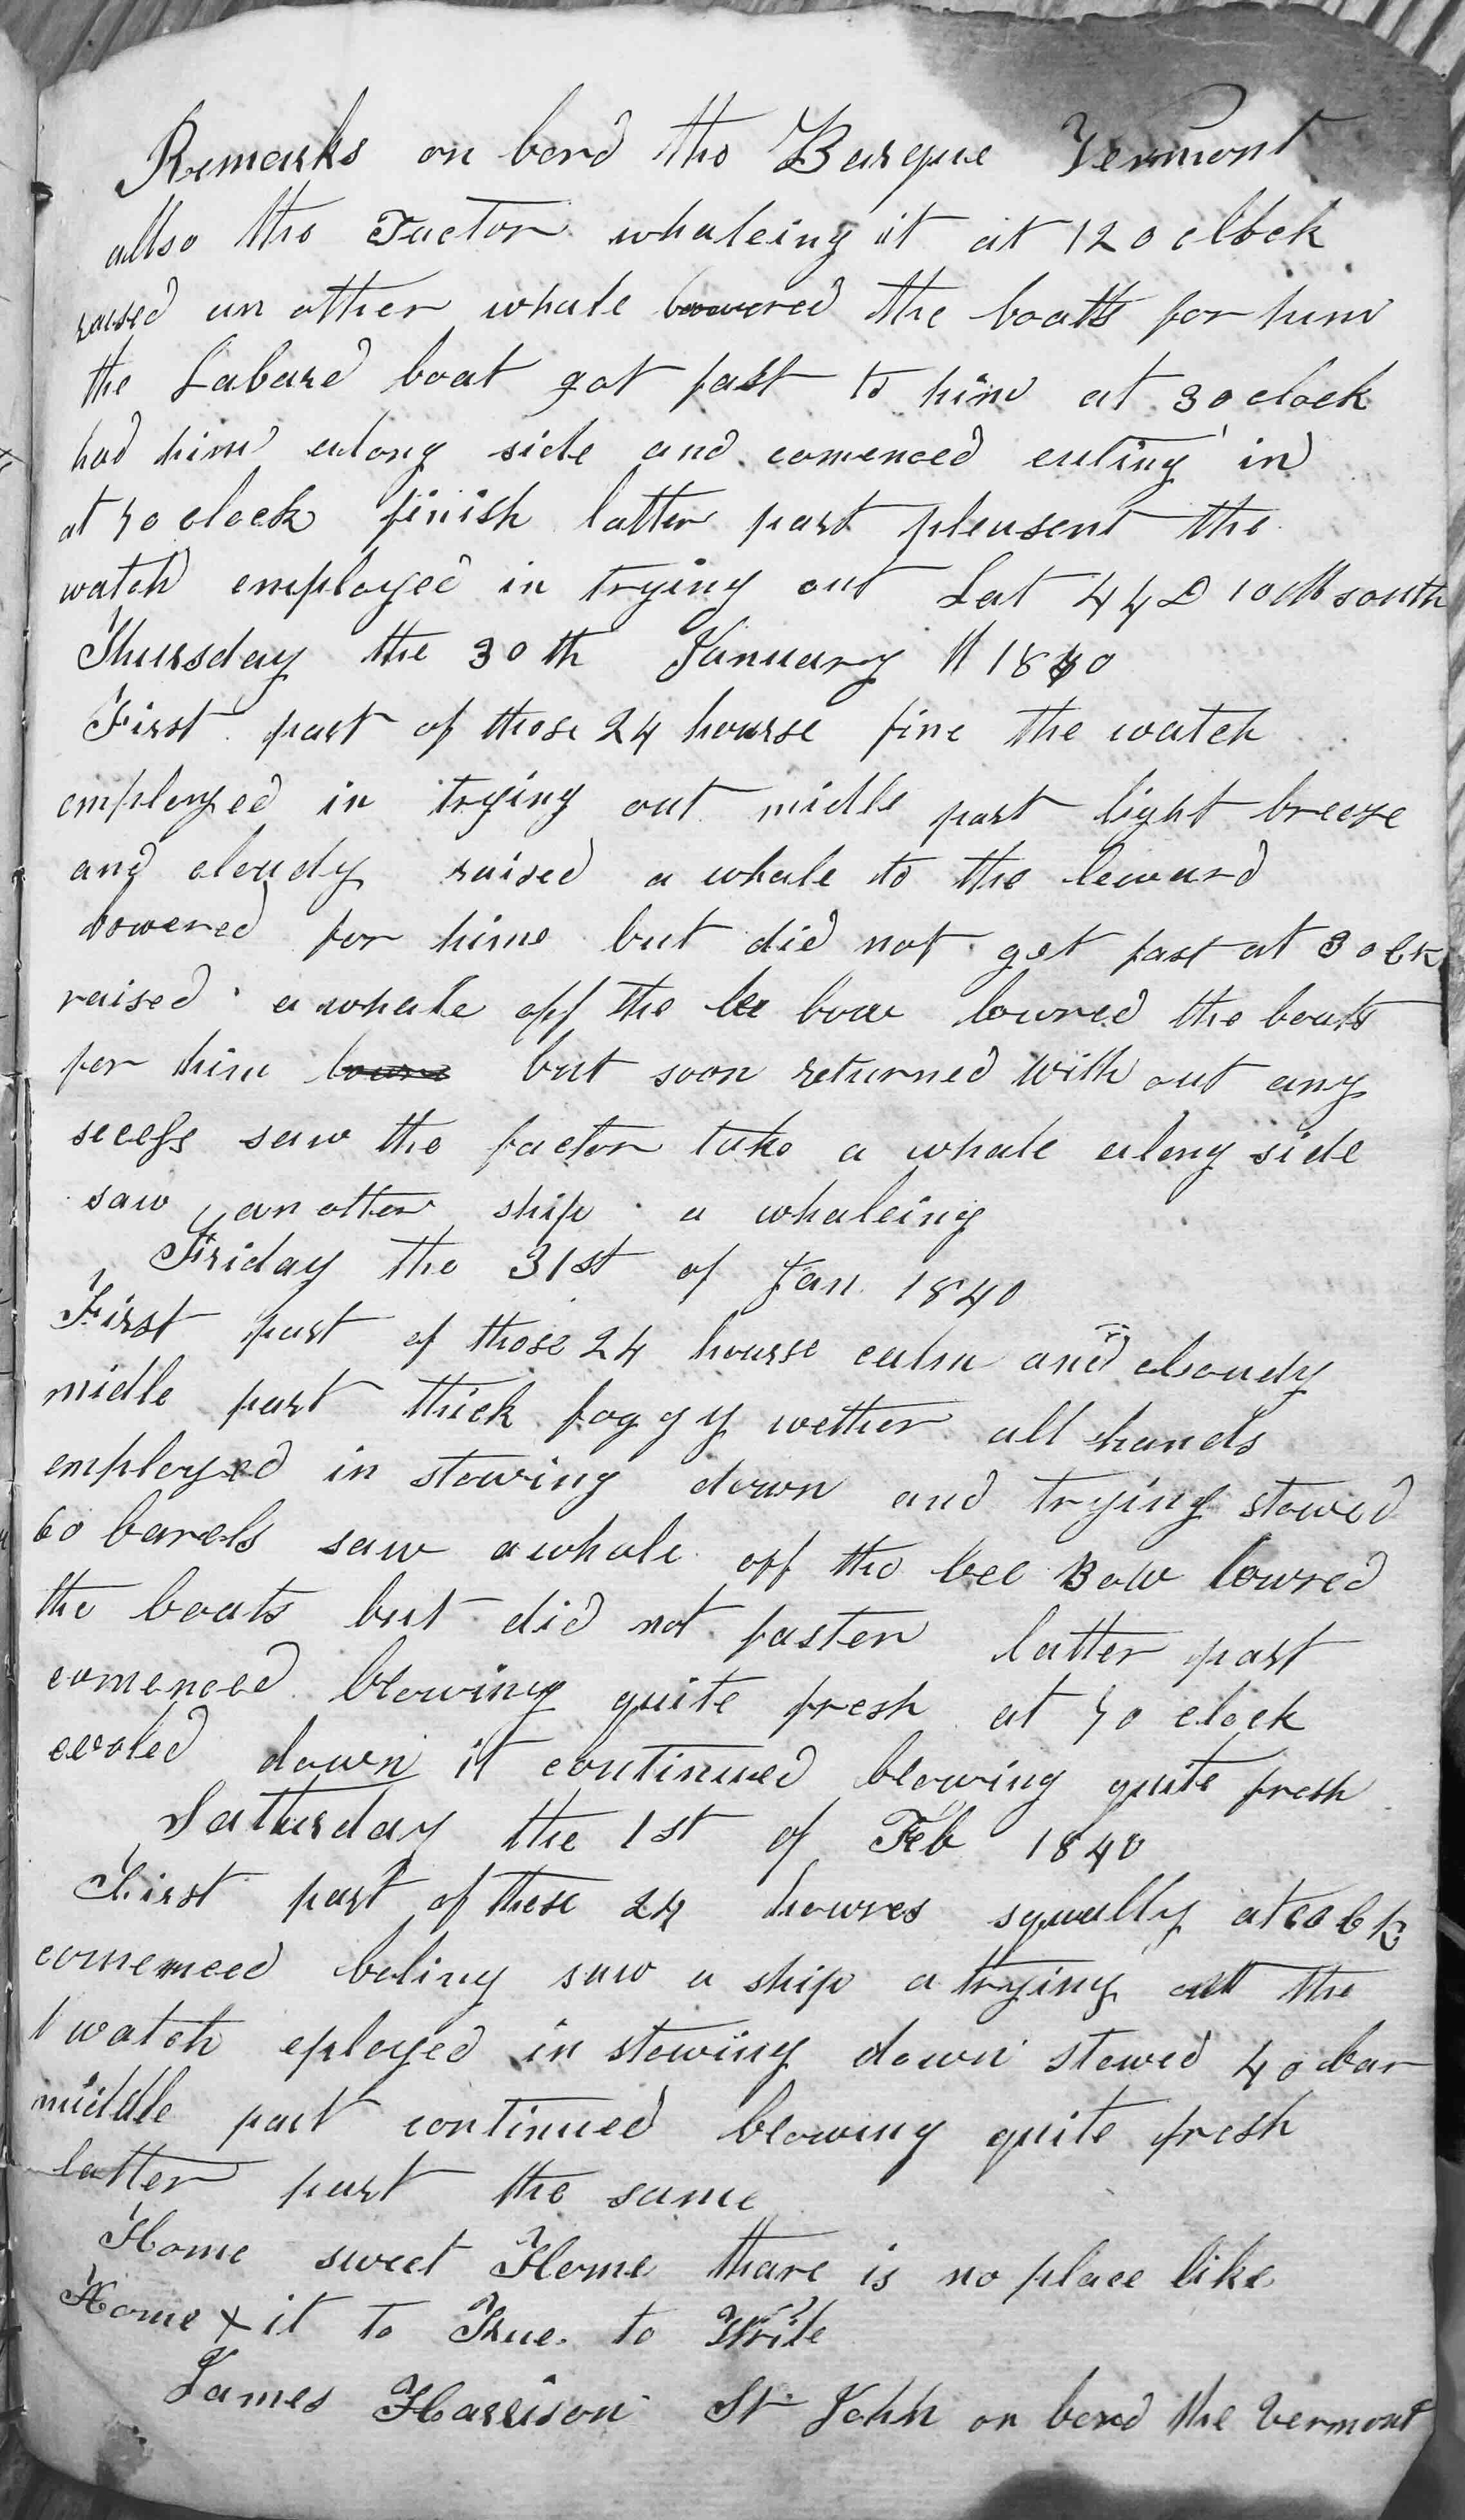 Remarks on bord the Barque Vermont
allso the Factor whaleing it at 12 o cllock
raised an other whale lowered the boatts for him
the Labard boat got fast to him at 3 o clock
had him along side and comenced cuting in
at 7 o clock finish latter part pleasent the
watch employed in trying out Lat 44 D 10 M south
Thursday the 30 th January 1840
First part of these 24 hourse fine the watch
employed in trying out midle part light breeze
and cloudy raised a whale to the leward
lowered for hime but did not get fast at 3 o ck
raised a whale off the lee bow lowred the boats
for him but soon returned with out any
secess saw the factor take a whale along side
saw an other ship a whaleing
Friday the 31st of Jan 1840
First part of these 24 hourse calm and cloudy
midle part thick foggy wether all hands
employed in stowing down and trying stowed
60 barels saw a whale off the lee Bow lowred
the boats but did not fasten latter part
comenced blowing quite fresh at 7 o clock
cooled down it continued blowing quite fresh
Satturday the 1st of Feb 1840
First part of these 24 howres squally at
comemced boling saw a ship a trying out the
watch eployed in stowing down stowed 40 bar
middle part continued blowing quite fresh
latter part the same
Home sweet Home thare is no place like
Home + it to True to Write
James Harrison St John on bord the Vermont